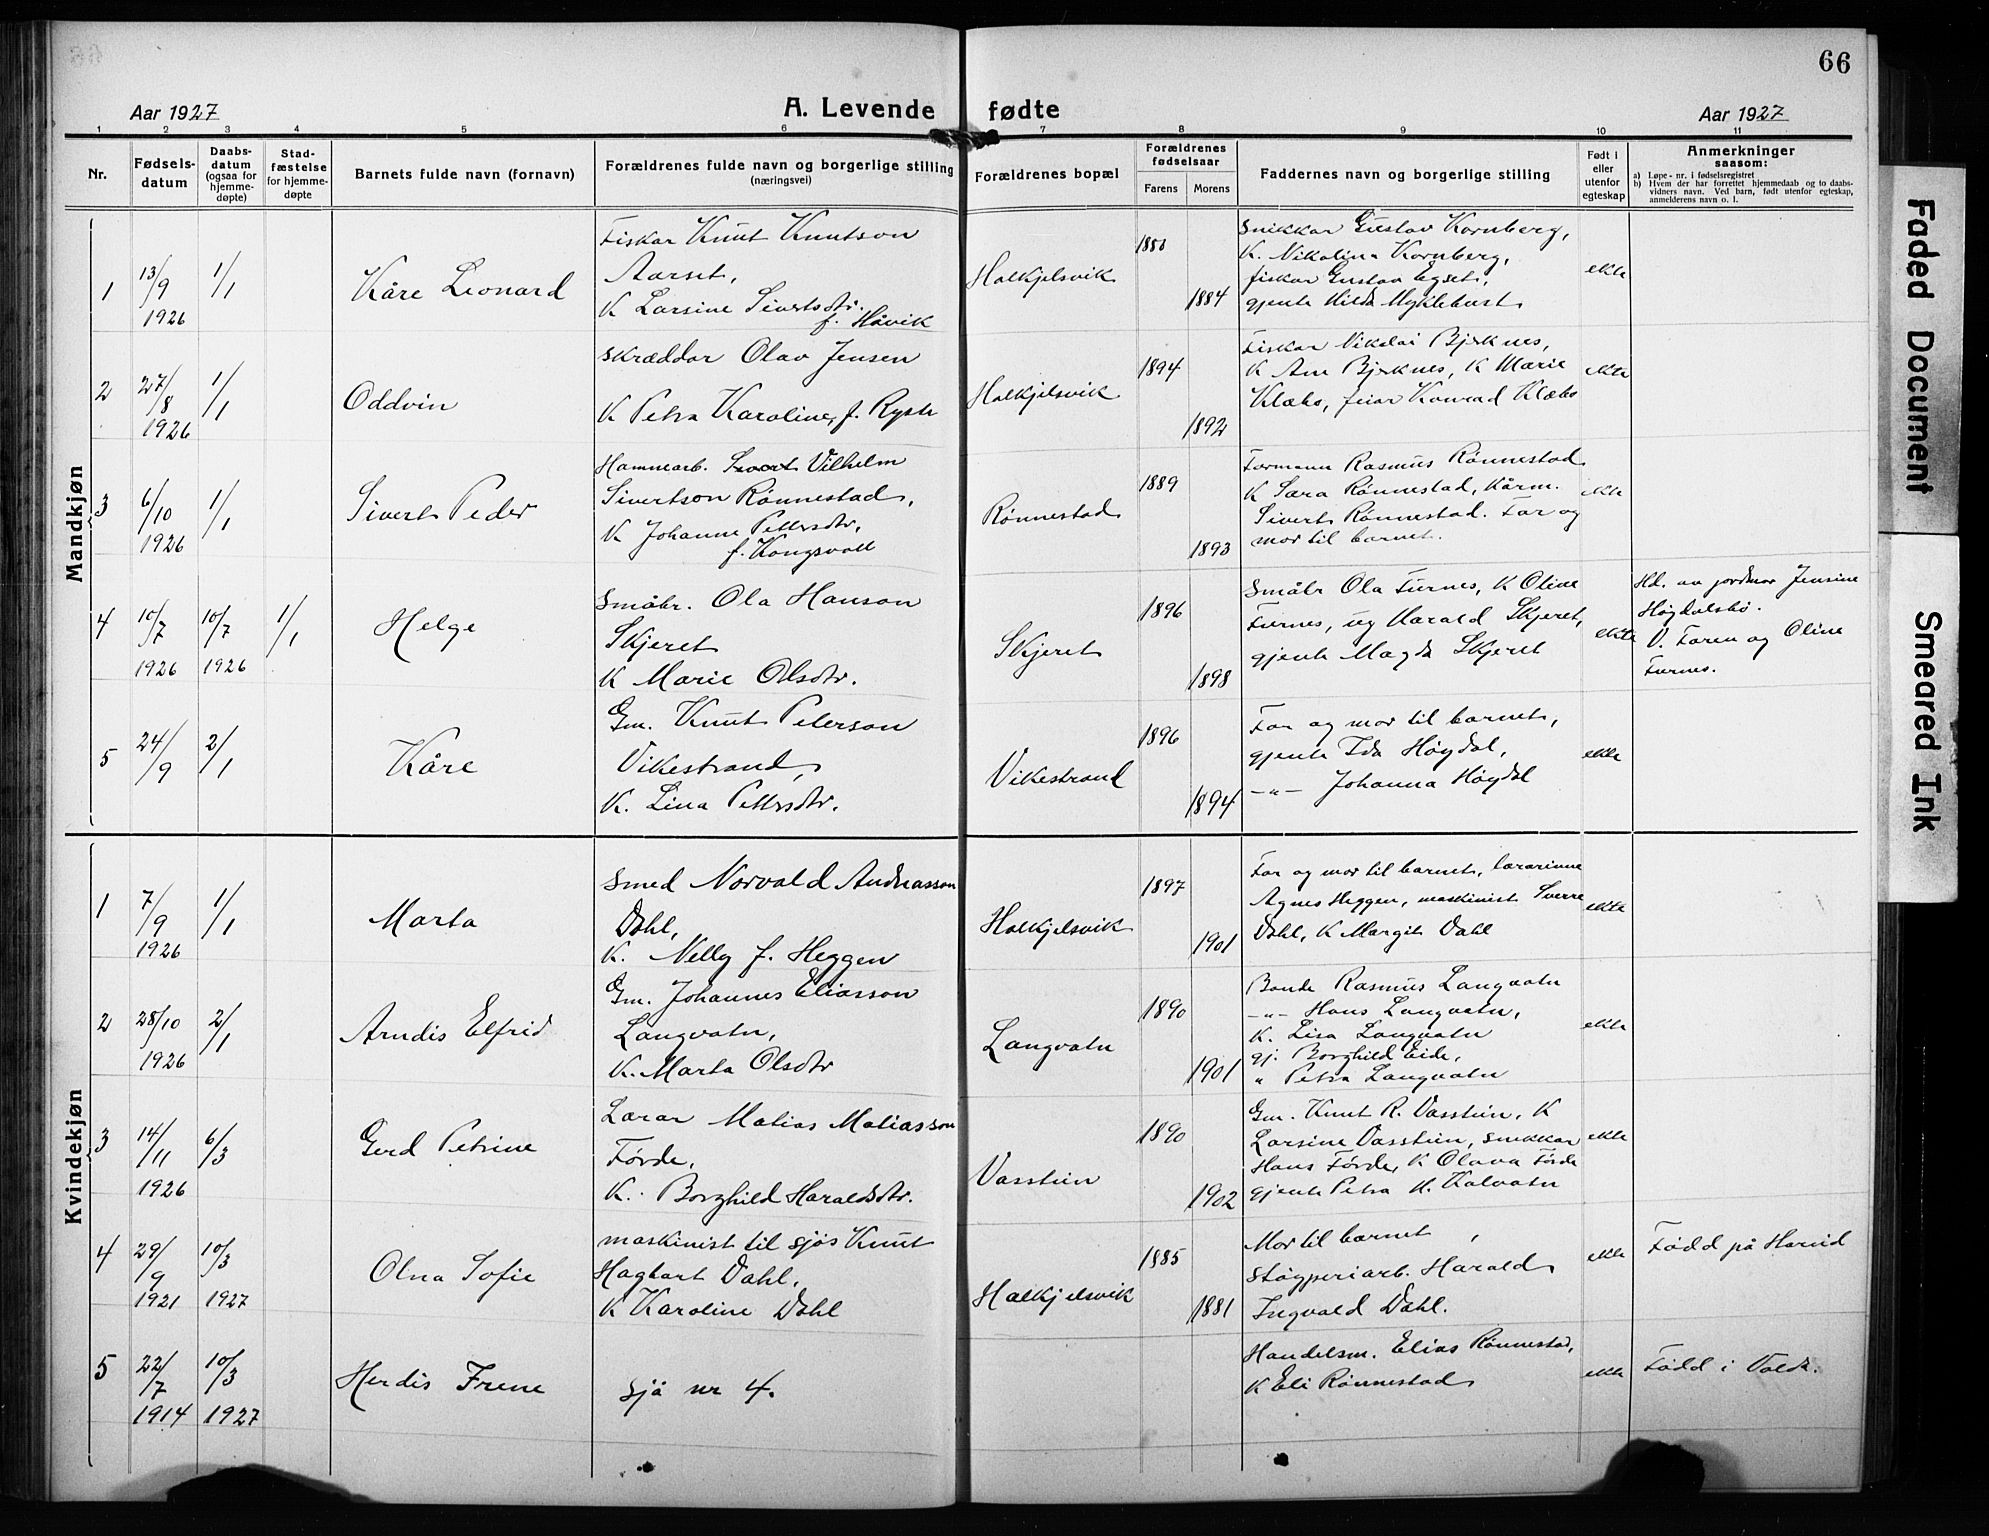 66
Aar 1927
A. Levende fødte
Aar 1927
1 2 3 4 5 6 7 8 9 10 11
Nr.
Fødsels-
datum
Daabs-
datum
(ogsaa for
hjemme-
døpte)
Stad-
fæstelse
for hjemme-
døpte
Barnets fulde navn (fornavn)
Forældrenes fulde navn og borgerlige stilling
(næringsvei)
Forældrenes bopæl
Forældrenes
fødselsaar
Farens
Morens
Faddernes navn og borgerlige stilling
Født i
eller
utenfor
egteskap
Anmerkninger
saasom:
a) Løpe-nr. i fødselsregistret
b) Hvem der har forrettet hjemmedaab og to daabs-
vidners navn. Ved barn, født utenfor egteskap,
anmelderens navn o. l.
Mandkjøn
1
13/9
1926
1/1
Kåre Leonard
Fiskar Knut Knutson
Aarset,
K Larsine Sivertsdtr.
f. Håvik
Halkjelsvik
1884
Snikkar Gustav Kornberg,
K. Nikolina Kornberg,
fiskar Gustav Egset,
gjente Hilda Myklebust
ekte
2
27/8
1926
1/1
Oddvin
Skræddar Olav Jensen
K Petra Karoline, f. Ryste
Halkjelsvik
1894
1892
Fiskar Nikolai Bjerknes,
K Ane Bjerknes, K Marie
Klæbo, feiar Konrad Klæbo
ekte
3
6/10
1926
1/1
Sivert Peder
Hamnearb. Sivert Vilhelm
Sivertson Rønnestad,
K Johanne Pettersdtr,
f. Kongsvoll
Rønnestad
1889
1893
Formann Rasmus Rønnestad
K Sara Rønnestad, Kårm.
Sivert Rønnestad. Far og
mor til barnet.
ekte
4
10/7
1926
10/7
1926
1/1
Helge
Småbr. Ola Hanson
Skjeret
K Marie Olsdtr.
Skjeret
1896
1898
Småbr Ola Furnes, K Oline
Furnes, ug Harald Skjeret,
gjente Magda Skjeret
ekte
Hd. av jordmor Jensine
Høgdalsbø.
V. Faren og Oline
Furnes.
5
24/9
2/1
Kåre
Gm. Knut Peterson
Vikestrand,
K. Lina Pettersdtr.
Vikestrand
1896
1894
Far og mor til barnet,
gjente Ida Høydal,
—"— Johanna Høydal
ekte
Kvindekjøn
1
7/9
1926
1/1
Marta
Smed Norvald Andreasson
Dahl,
K. Nelly f. Heggen
Halkjelsvik
1897
1901
Far og mor til barnet, lærarinne
Agnes Heggen, maskinist Sverre
Dahl, K Margit Dahl
ekte
2
28/10
1926
2/1
Arndis Elfrid
Gm. Johannes Eliasson
Langvatn,
K. Marta Olsdtr
Langvatn
1890
1901
Bonde Rasmus Langvatn
—"— Hans Langvatn,
K. Lisa Langvatn
gj. Borghild Eide,
" Petra Langvatn
ekte
3
14/11
1926
6/3
Gerd Petrine
Lærar Matias Matiasson
Førde,
K. Borghild Haraldsdtr.
Vasstein
1890
1902
Gm. Knut R. Vasstein, K
Larsine Vasstein, snikkar
Hans Førde, K Olava Førde
gjente Petra K. Kalvatn
ekte
4
29/9
1921
10/3
1927
Olna Sofie
maskinist til sjøs Knut
Hagbart Dahl,
K Karoline Dahl
Halkjelsvik
1885
1881
Mor til barnet,
Støyperiarb. Harald
Ingvald Dahl.
ekte
Fødd på Hareid
5
22/7
1914
10/3
1927
Herdis Irene
sjå nr 4.
Handelsm. Elias Rønnestad,
K Eli Rønnestad
ekte
Fødd i Volda.
Faded Document
Smeared Ink